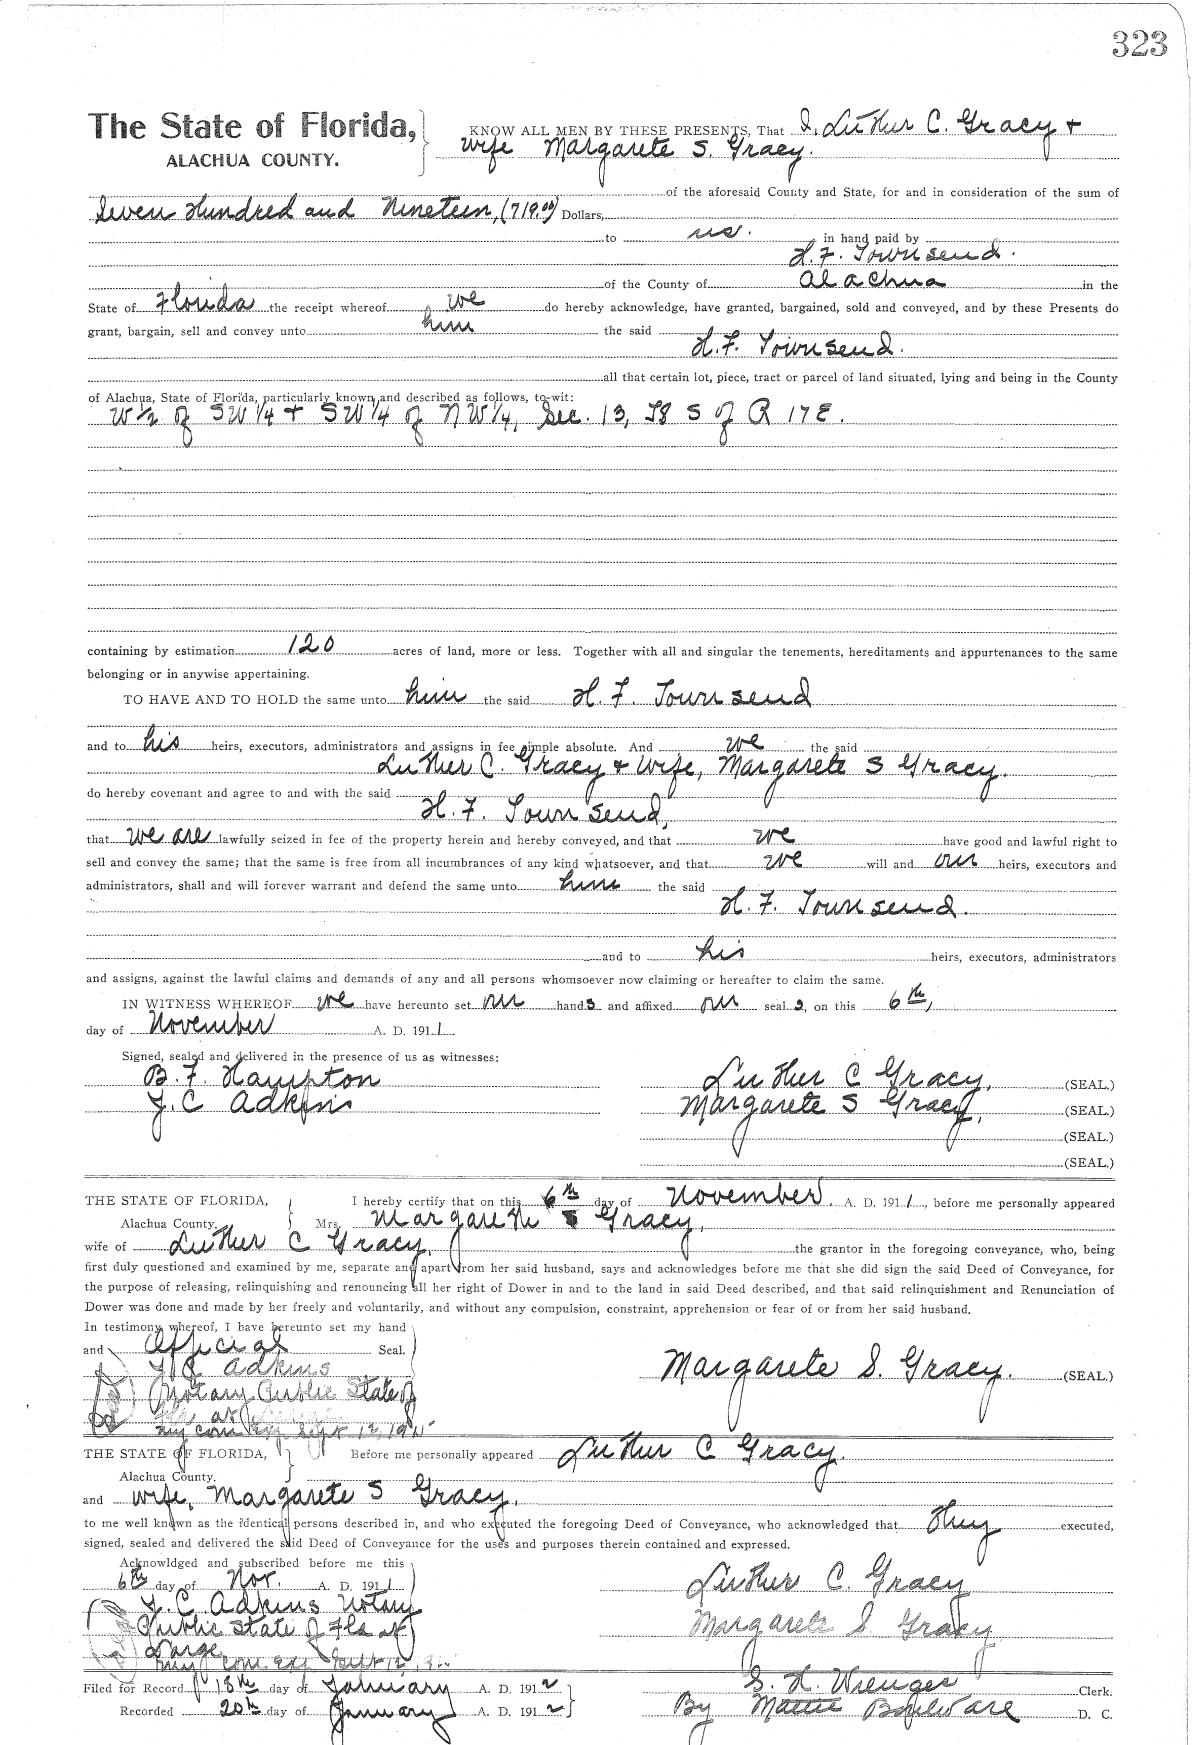 323
The State of Florida,
ALACHUA COUNTY.
KNOW ALL MEN BY THESE PRESENTS, That I, Luther C. Gracy +
wife Margarete S. Gracy.
of the aforesaid County and State, for and in consideration of the sum of
Seven Hundred and Nineteen, (719.00) Dollars,
to us. in hand paid by
H. F. Townsend.
of the County of Alachua in the
State of Florida the receipt whereof we do hereby acknowledge, have granted, bargained, sold and conveyed, and by these Presents do
grant, bargain, sell and convey unto him the said
H. F. Townsend.
all that certain lot, piece, tract or parcel of land situated, lying and being in the County
of Alachua, State of Florida, particularly known and described as follows, to-wit:
W½ of SW¼ + SW¼ of NW¼, Sec. 13, T8 S of R 17 E.
containing by estimation 120 acres of land, more or less. Together with all and singular the tenements, hereditaments and appurtenances to the same
belonging or in anywise appertaining.
TO HAVE AND TO HOLD the same unto him the said H. F. Townsend
and to his heirs, executors, administrators and assigns in fee simple absolute. And we the said
Luther C. Gracy + wife, Margarete S Gracy.
do hereby covenant and agree to and with the said
H. F. Townsend,
that we are lawfully seized in fee of the property herein and hereby conveyed, and that we have good and lawful right to
sell and convey the same; that the same is free from all incumbrances of any kind whatsoever, and that we will and our heirs, executors and
administrators, shall and will forever warrant and defend the same unto him the said
H. F. Townsend.
and to his heirs, executors, administrators
and assigns, against the lawful claims and demands of any and all persons whomsoever now claiming or hereafter to claim the same.
IN WITNESS WHEREOF we have hereunto set our hands and affixed our seals, on this 6th,
day of November A. D. 1911
Signed, sealed and delivered in the presence of us as witnesses:
B. F. Hampton
J. C Adkins
Luther C Gracy, (SEAL.)
Margarete S Gracy, (SEAL.)
(SEAL.)
(SEAL.)
THE STATE OF FLORIDA, I hereby certify that on this 6th day of November, A. D. 1911, before me personally appeared
Alachua County. Mrs. Margarete S Gracy,
wife of Luther C Gracy, the grantor in the foregoing conveyance, who, being
first duly questioned and examined by me, separate and apart from her said husband, says and acknowledges before me that she did sign the said Deed of Conveyance, for
the purpose of releasing, relinquishing and renouncing all her right of Dower in and to the land in said Deed described, and that said relinquishment and Renunciation of
Dower was done and made by her freely and voluntarily, and without any compulsion, constraint, apprehension or fear of or from her said husband.
In testimony whereof, I have hereunto set my hand
and Official Seal.
J C Adkins
Notary Public State of
Fla at Large
my com Exp. Sept 12, 191
Margarete S. Gracy. (SEAL)
THE STATE OF FLORIDA, Before me personally appeared Luther C Gracy.
Alachua County.
and wife, Margarete S Gracy,
to me well known as the identical persons described in, and who executed the foregoing Deed of Conveyance, who acknowledged that they executed,
signed, sealed and delivered the said Deed of Conveyance for the uses and purposes therein contained and expressed.
Acknowldged and subscribed before me this
6th day of Nov. A. D. 1911
J. C. Adkins Notary
Public State of Fla at
Large
my com. exp. Sept 12,
Luther C. Gracy
Margarete S. Gracy
Filed for Record 18th day of January A. D. 1912
Recorded 20th day of January A. D. 1912
S. H. Wienges Clerk.
By Mattie Boulware D. C.